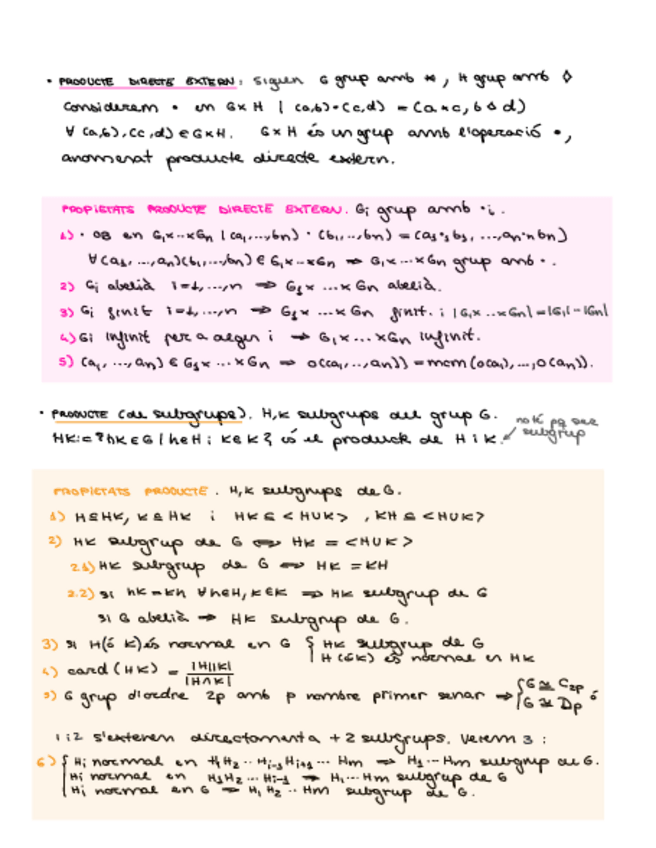 • PRODUCTE DIRECTE EXTERN: Siguen G grup amb *, H grup amb ◊
Considerem • en G×H | (a,b)•(c,d) = (a*c, b◊d)
∀ (a,b),(c,d) ∈ G×H. G×H és un grup amb l'operació •,
anomenat producte directe extern.
PROPIETATS PRODUCTE DIRECTE EXTERN. Gi grup amb ·i.
1) · OB en G1×...×Gn | (a1,...,bn) · (b1,...,bn) = (a1·1b1, ...,an·nbn)
∀(a1, ...,an)(b1,...,bn) ∈ G1×...×Gn ⇒ G1×...×Gn grup amb ·.
2) Gi abelià i=1,...,n ⇒ G1× ...×Gn abelià.
3) Gi finit i=1,...,n ⇒ G1× ...×Gn finit. i |G1×...×Gn|=|G1|···|Gn|
4) Gi infinit per a algen i ⇒ G1×...×Gn infinit.
5) (a1, ..., an) ∈ G1× ...×Gn ⇒ o((a1,...,an)) = mcm(o(a1),...,o(an)).
• PRODUCTE (de subgrups). H,K subgrups del grup G.
no té pq ser
subgrup
HK:={hk∈G | h∈H i k∈K}, és el producte de H i K.
PROPIETATS PRODUCTE. H,K subgrups de G.
1) H⊆HK, K⊆HK i HK⊆<H∪K>, KH⊆<H∪K>
2) HK subgrup de G ⇔ HK = <H∪K>
2.1) HK subgrup de G ⇔ HK = KH
2.2) si hk=kh ∀h∈H, k∈K ⇒ HK subgrup de G
si G abelià ⇒ HK subgrup de G.
3) si H(ó K) és normal en G { HK subgrup de G
H (óK) és normal en HK
4) card(HK) = |H||K| / |H∩K|
5) G grup d'ordre 2p amb p nombre primer senar ⇒ { G≅C2p ó
G≅Dp
1 i 2 s'extenen directament a +2 subgrups. Verem 3:
6) { Hi normal en H1H2...Hi-1Hi+1...Hm ⇒ H1...Hm subgrup de G.
Hi normal en H1H2...Hi-1 ⇒ H1...Hm subgrup de G
Hi normal en G ⇒ H1H2...Hm subgrup de G.